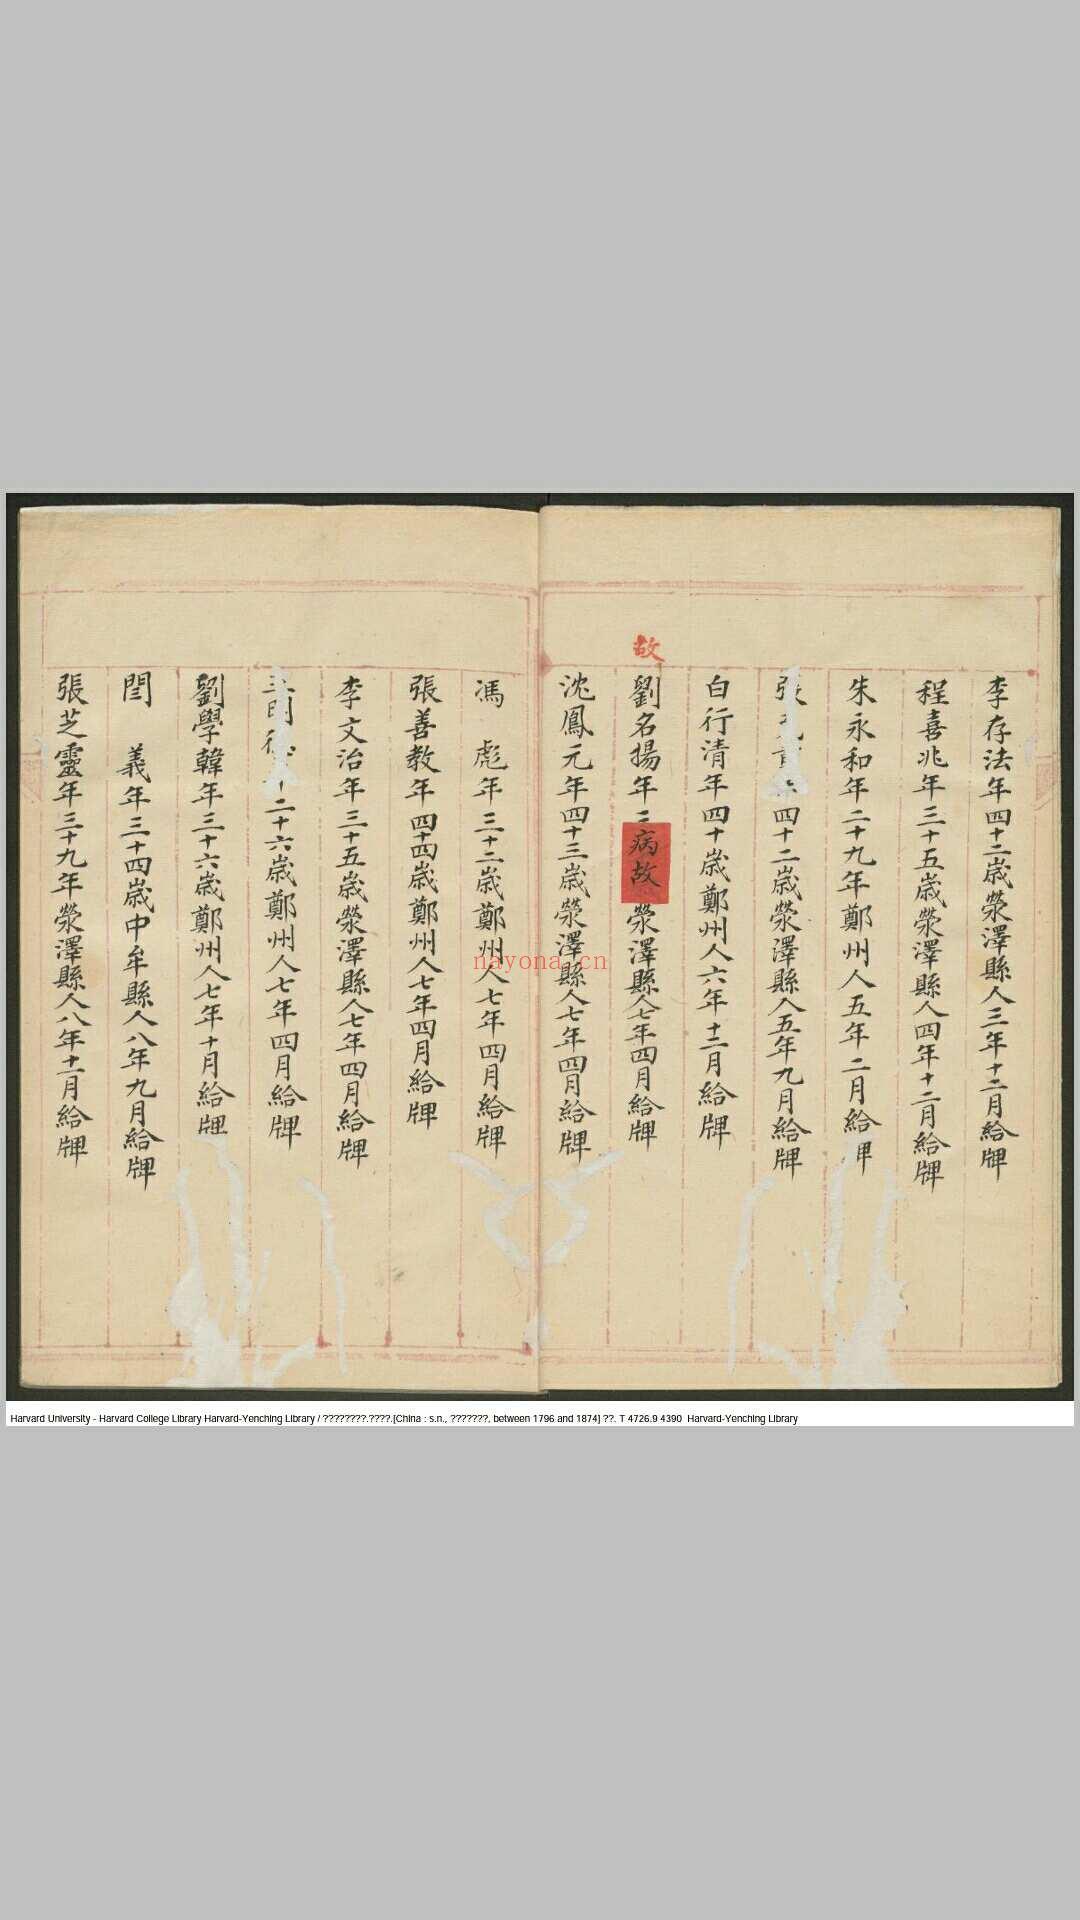 李存法年四十二歲滎澤縣人三年十二月給牌
程喜兆年三十五歲滎澤縣人四年十二月給牌
朱永和年二十九年鄭州人五年二月給
張 年四十二歲滎澤縣人五年九月給牌
白行清年四十歲鄭州人六年十二月給牌
故
劉名揚年 病故 滎澤縣人七年四月給牌
沈鳳元年四十三歲滎澤縣人七年四月給牌
馮 彪年三十二歲鄭州人七年四月給牌
張善教年四十四歲鄭州人七年四月給牌
李文治年三十五歲滎澤縣人七年四月給牌
二十六歲鄭州人七年四月給牌
劉學韓年三十六歲鄭州人七年十月給牌
閆 義年三十四歲中牟縣人八年九月給牌
張芝靈年三十九年滎澤縣人八年十一月給牌
nayona.cn
Harvard University - Harvard College Library Harvard-Yenching Library / ????????.????.[China : s.n., ???????, between 1796 and 1874] ??. T 4726.9 4390 Harvard-Yenching Library